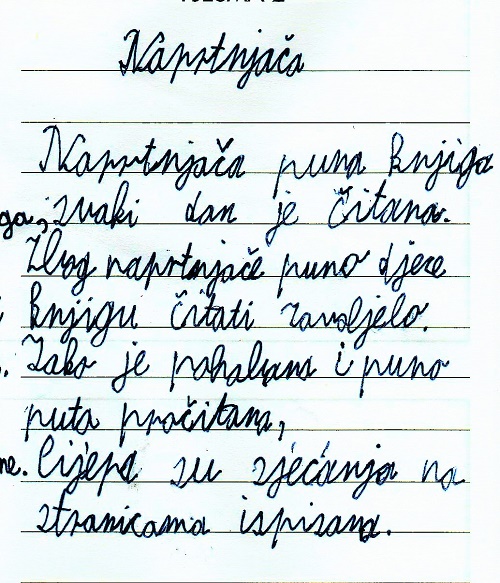 Naprtnjača
Naprtnjača puna knjiga
svaki dan je čitana.
Zbog naprtnjače puno djece
knjigu čitati zavoljelo.
Iako je pohabana i puno
puta pročitana,
ne. lijepa su sjećanja na
stranicama ispisana.